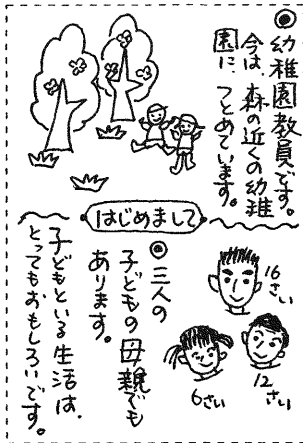 ◎幼稚園教員です。
今は、森の近くの幼稚
園に、つとめています。
はじめまして
◎三人の
子どもの母親でも
あります。
16さい
12さい
6さい
子どもといる生活は、
とってもおもしろいです。